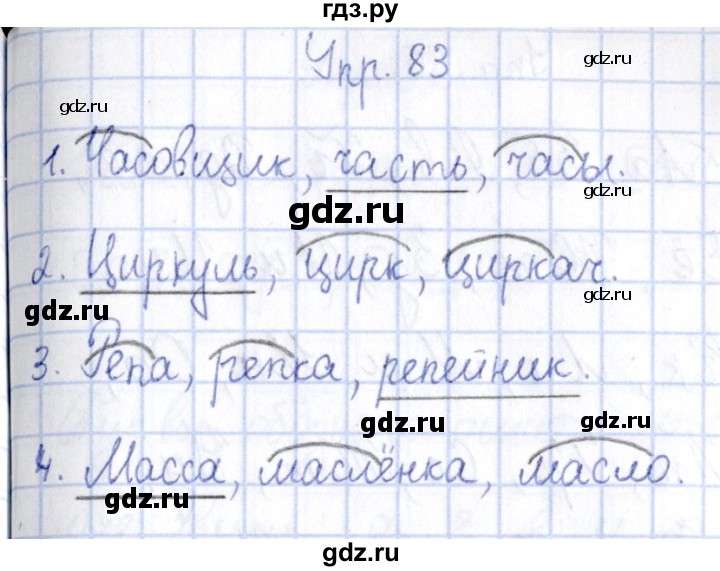 гдз.ру
Упр. 83
gdz.ru
gdz.ru
1. Часовщик, часть, часы.
gdz.ru
gdz.ru
2. Циркуль, цирк, циркач.
gdz.ru
gdz.ru
3. Репа, репка, репейник.
gdz.ru
gdz.ru
4. Масса, маслёнка, масло.
gdz.ru
gdz.ru